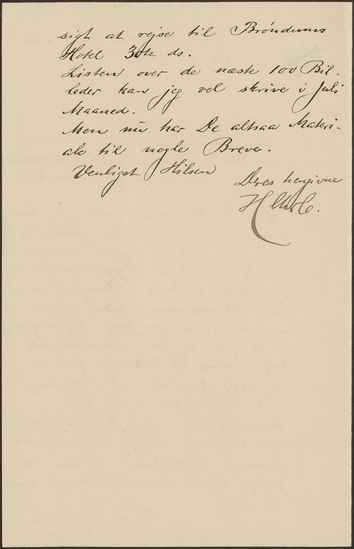 sigt at rejse til Bröndums
Hotel 30te ds.
Listen over de næste 100 Bil-
leder kan jeg vel skrive i Juli
Maaned.
Men nu har De altsaa Materi-
ale til nogle Breve.
Venligst Hilsen
Deres hengivne